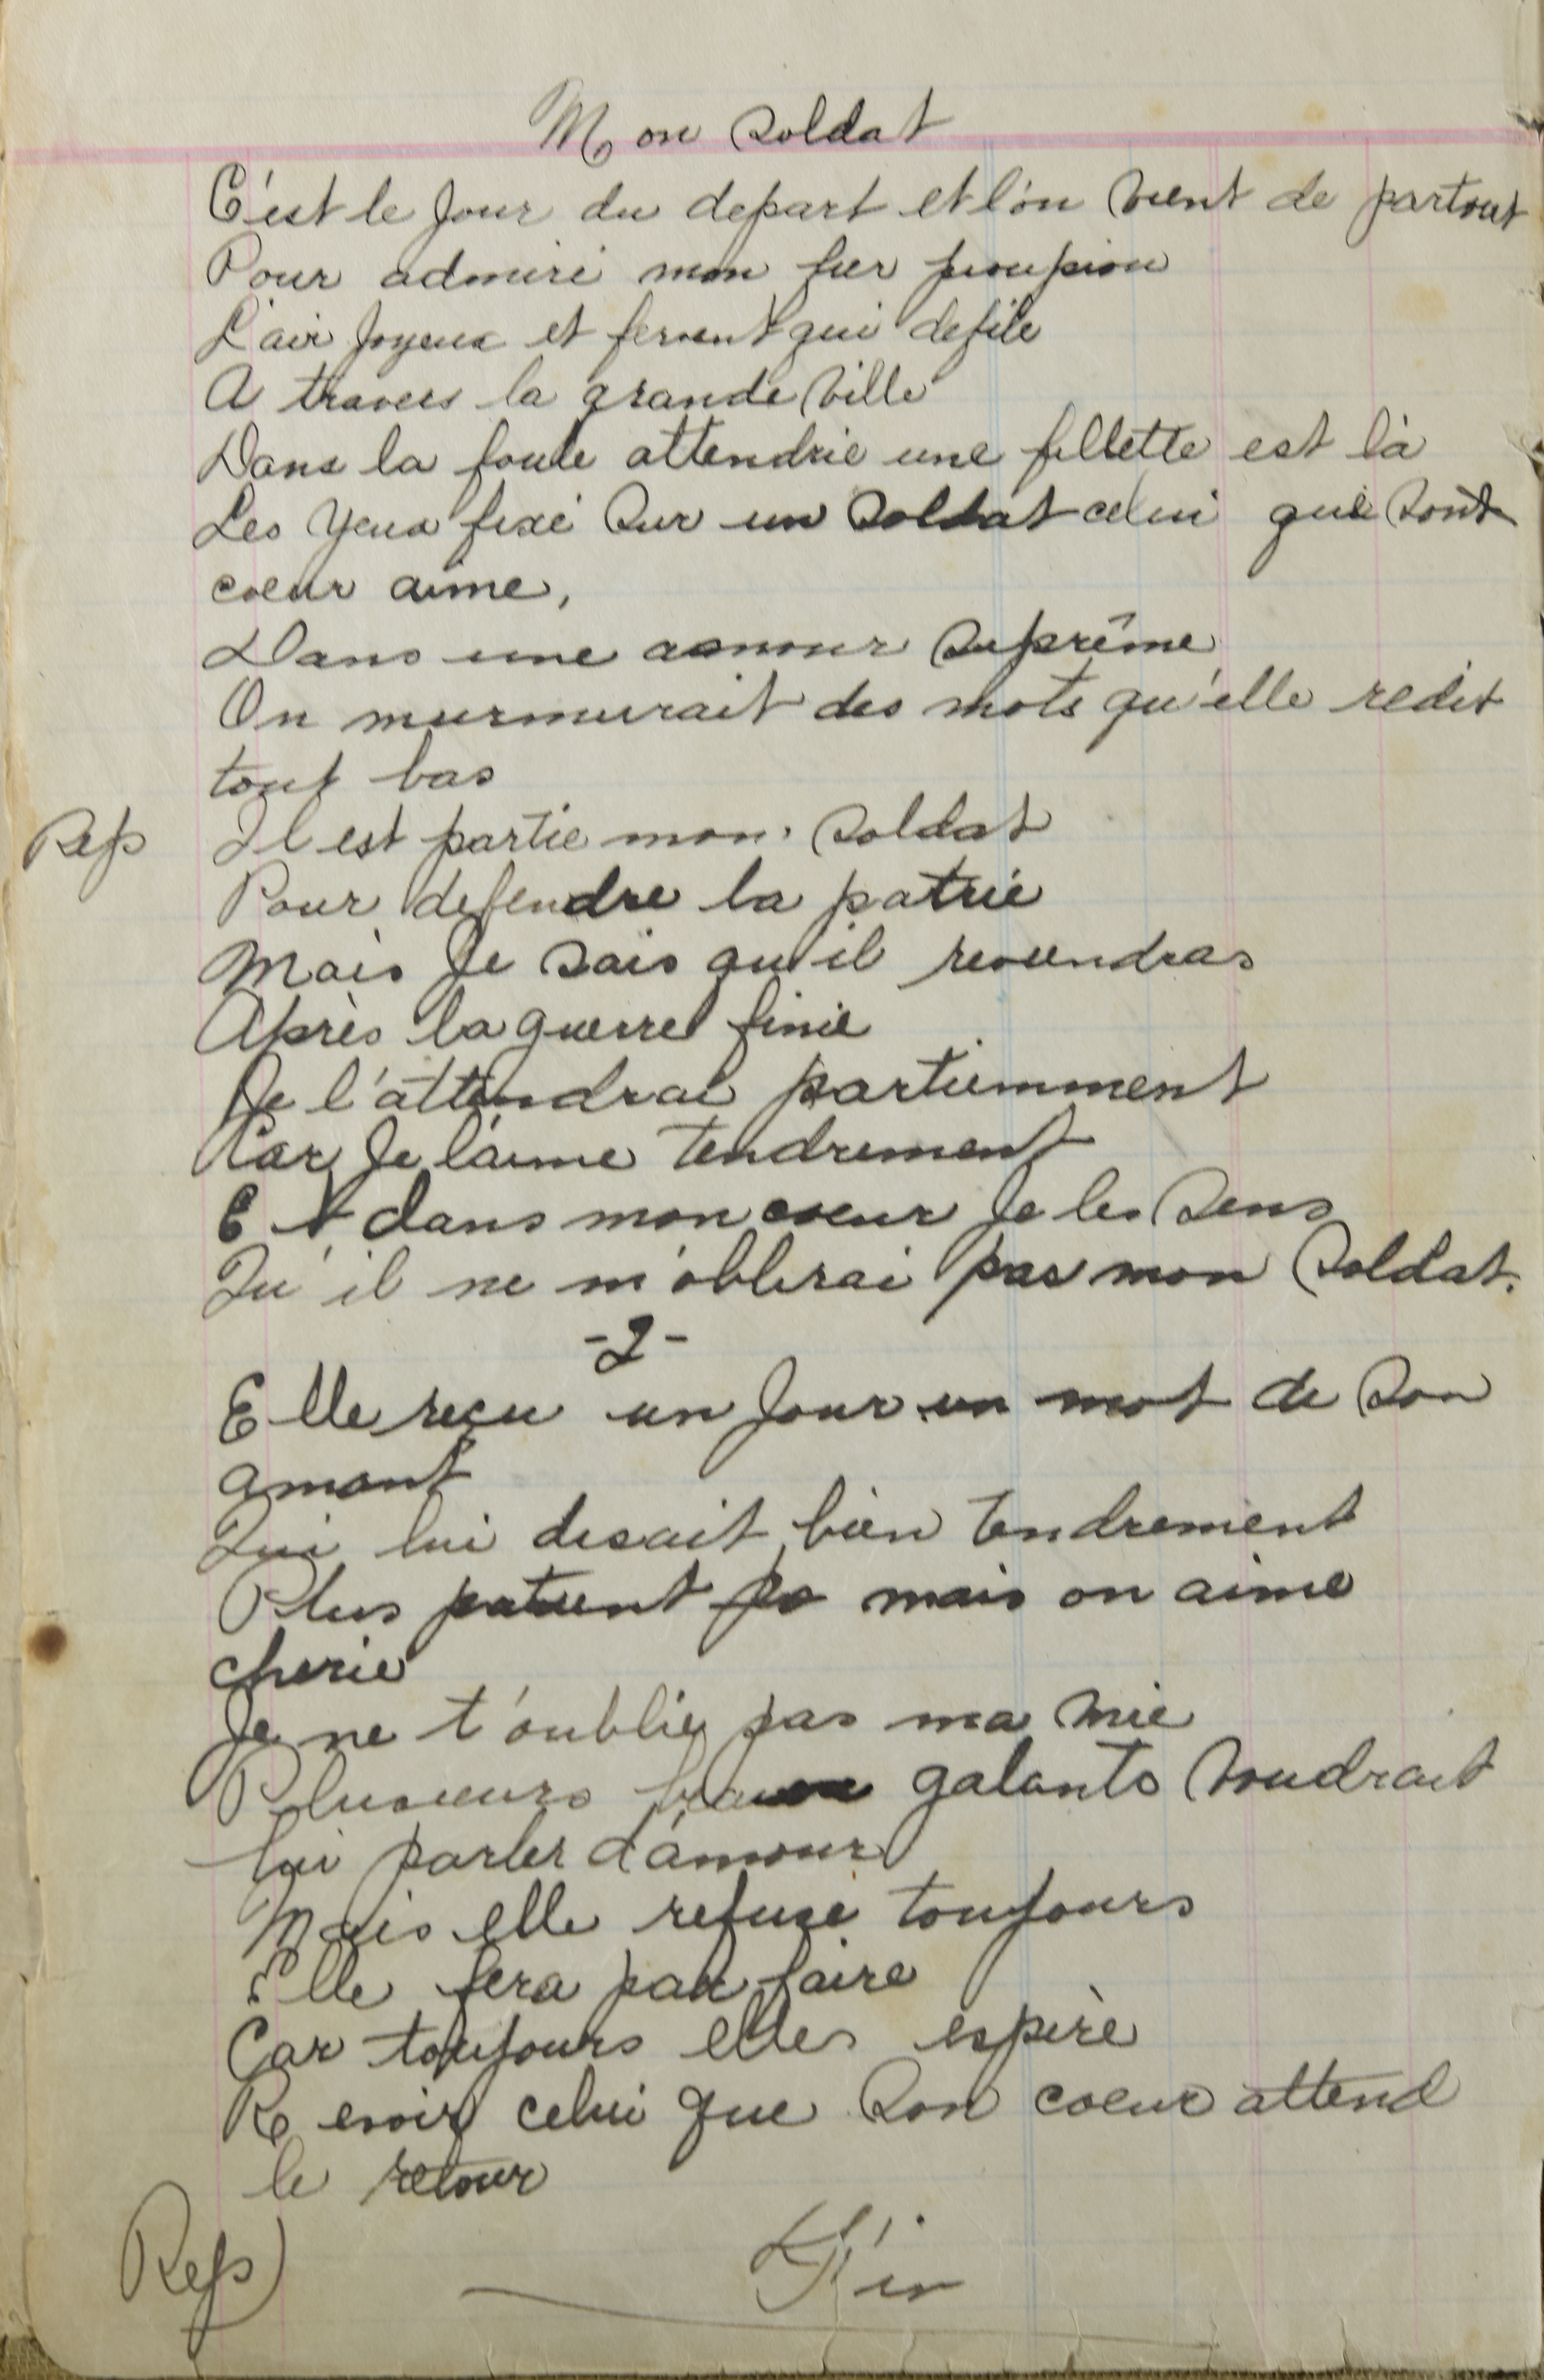 Mon soldat
C'est le jour du depart et l'on vient de partout
Pour admiré mon fier pioupiou
L'air Joyeux et fervent qui defile
A travers la grande ville
Dans la foule attendrie une fillette est là
Les Yeux fixé sur un soldat celui que sont
coeur aime,
Dans une amour suprême
On murmurait des mots qu'elle redit
tout bas
Refs Il est partie mon soldat
Pour defendre la patrie
Mais Je sais qu'il reviendras
Après la guerre finie
Je l'attendrai partiemment
Car Je l'aime tendrement
Et dans mon coeur Je les sens
Qu'il ne m'oblirai pas mon soldat.
-2-
Elle reçu un Jour un mot de son
amant
Qui lui disait bien tendrement
Plus patient mais on aime
cherie
Je ne t'oublie pas ma mie
Plusieurs galants voudrait
lui parler d'amour
Mais elle refuse toujours
Elle fera par faire
Car toujours elles espère
Revoir celui que son coeur attend
le retour
Refs)